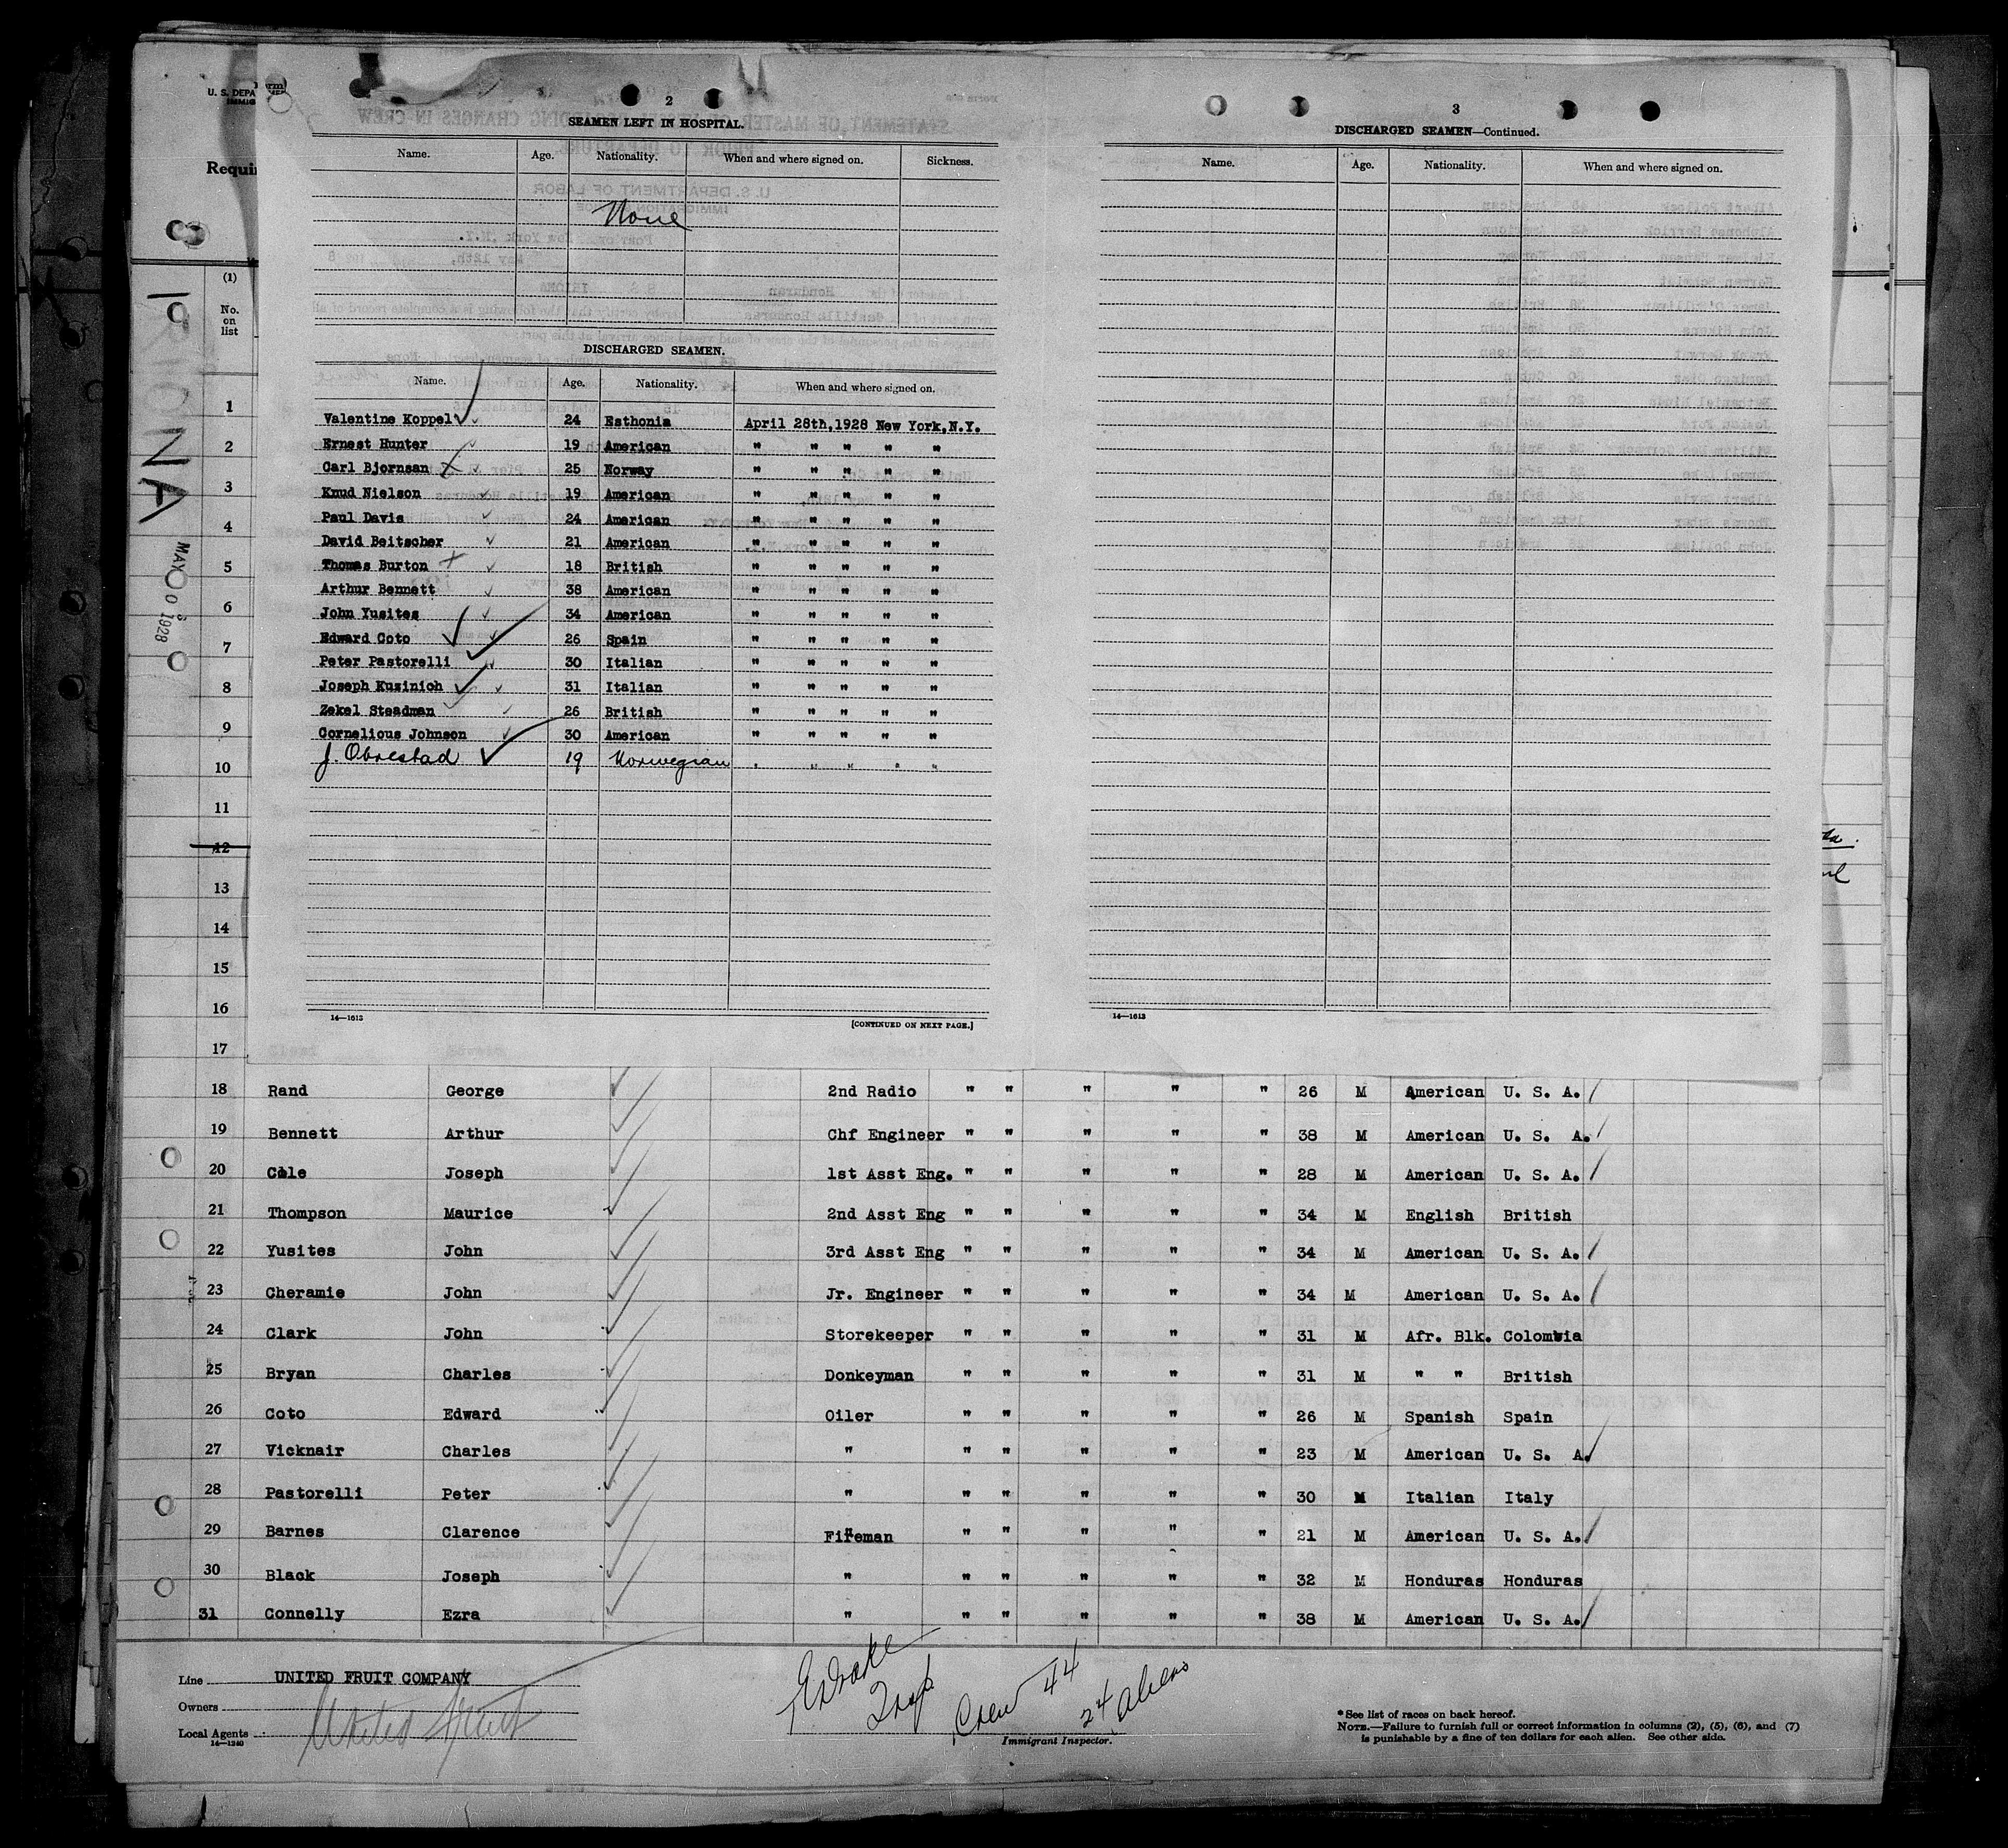 U. S. DEPA
IMMIG
Requir
IRIONA
MAY 1928
2
SEAMEN LEFT IN HOSPITAL.
Name. Age. Nationality. When and where signed on. Sickness.
None
DISCHARGED SEAMEN.
Name. Age. Nationality. When and where signed on.
Valentine Koppel 24 Esthonia April 28th,1928 New York,N.Y.
Ernest Hunter 19 American " " " " "
Carl Bjornsan 25 Norway " " " " "
Knud Nielson 19 American " " " " "
Paul Davis 24 American " " " " "
David Beitscher 21 American " " " " "
Thomas Burton 18 British " " " " "
Arthur Bennett 38 American " " " " "
John Yusites 34 American " " " " "
Edward Coto 26 Spain " " " " "
Peter Pastorelli 30 Italian " " " " "
Joseph Kuzinich 31 Italian " " " " "
Zekel Steadman 26 British " " " " "
Cornelious Johnson 30 American " " " " "
J. Obrestad 19 Norwegian " " " " "
14—1613
[CONTINUED ON NEXT PAGE.]
3
DISCHARGED SEAMEN—Continued.
Name. Age. Nationality. When and where signed on.
14—1613
(1)
No. on list
1
2
3
4
5
6
7
8
9
10
11
12
13
14
15
16
17
18 Rand George 2nd Radio " " " " " 26 M American U. S. A.
19 Bennett Arthur Chf Engineer " " " " " 38 M American U. S. A.
20 Cole Joseph 1st Asst Eng. " " " " " 28 M American U. S. A.
21 Thompson Maurice 2nd Asst Eng " " " " " 34 M English British
22 Yusites John 3rd Asst Eng " " " " " 34 M American U. S. A.
23 Cheramie John Jr. Engineer " " " " " 34 M American U. S. A.
24 Clark John Storekeeper " " " " " 31 M Afr. Blk. Colombia
25 Bryan Charles Donkeyman " " " " " 31 M " " British
26 Coto Edward Oiler " " " " " 26 M Spanish Spain
27 Vicknair Charles " " " " " " 23 M American U. S. A.
28 Pastorelli Peter " " " " " " 30 M Italian Italy
29 Barnes Clarence Fireman " " " " " 21 M American U. S. A.
30 Black Joseph " " " " " " 32 M Honduras Honduras
31 Connelly Ezra " " " " " " 38 M American U. S. A.
Line UNITED FRUIT COMPANY
Owners United Fruit
Local Agents
14—1240
Crew 44
24 aliens
Immigrant Inspector.
* See list of races on back hereof.
NOTE.—Failure to furnish full or correct information in columns (2), (5), (6), and (7)
is punishable by a fine of ten dollars for each alien. See other side.